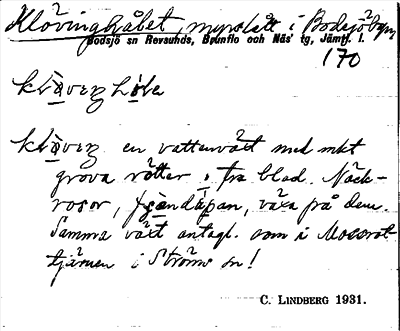 Klövinghålet, myrslått i Bodsjöbyn
Bodsjö sn Revsunds, Brunflo och Näs' tg, Jämtl. l.
170
klöveŋ hòle
klöveŋ en vattenväxt med mkt
grova rötter o. fra blad. Näck-
rosor,         växa på dem.
Samma växt antagl. som i Mossrot-
tjärnen i Ströms sn!
C. LINDBERG 1931.